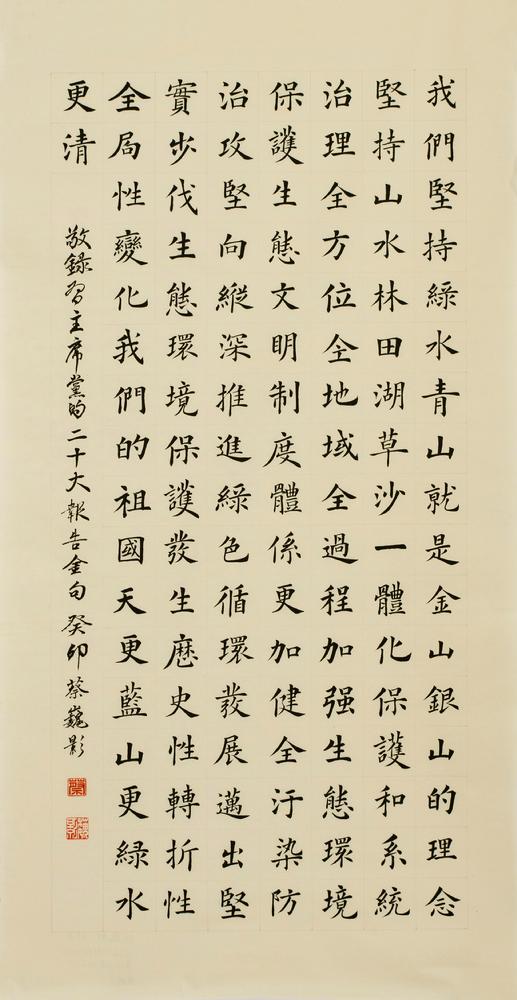 我們堅持綠水青山就是金山銀山的理念
堅持山水林田湖草沙一體化保護和系統
治理全方位全地域全過程加强生態環境
保護生態文明制度體係更加健全汙染防
治攻堅向縱深推進綠色循環發展邁出堅
實步伐生態環境保護發生歷史性轉折性
全局性變化我們的祖國天更藍山更緑水
更清
敬録習主席黨的二十大報告金句 癸卯蔡巍影